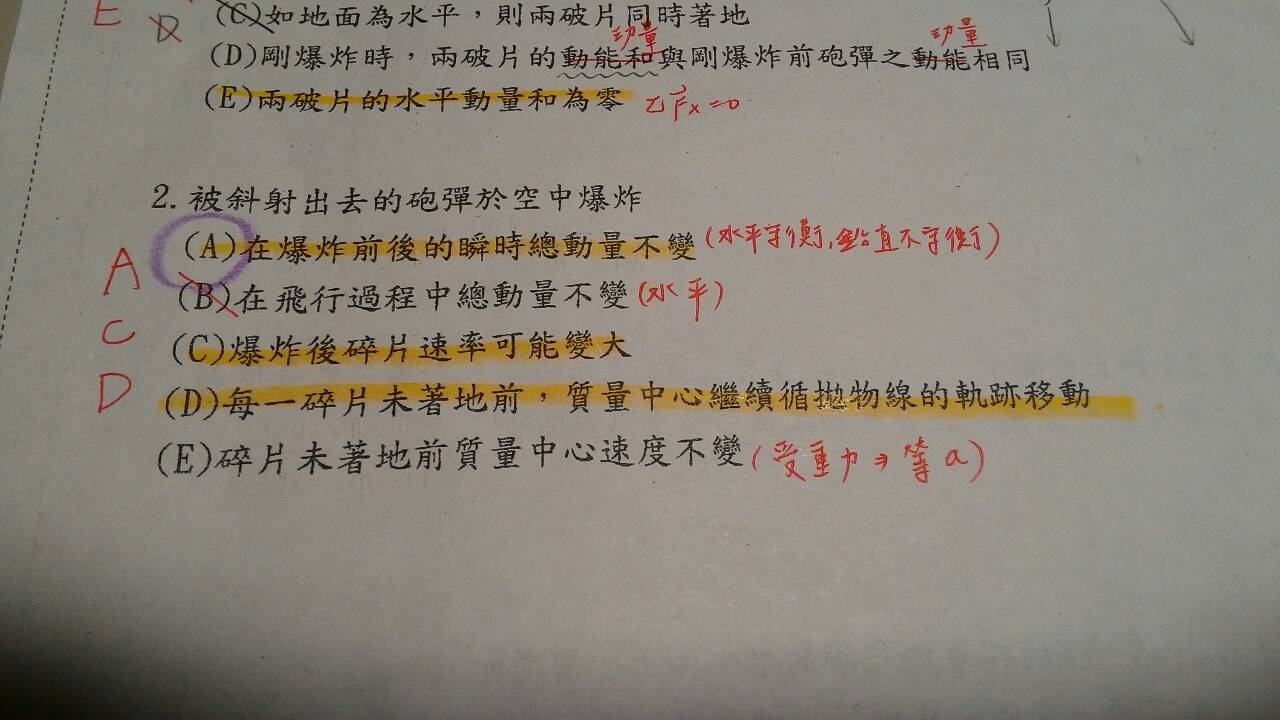 E D (C)如地面為水平，則兩破片同時著地
動量 動量
(D)剛爆炸時，兩破片的動能和與剛爆炸前砲彈之動能相同
(E)兩破片的水平動量和為零 ΣFx=0
2.被斜射出去的砲彈於空中爆炸
(A)在爆炸前後的瞬時總動量不變(水平守衡,鉛直不守衡)
A (B)在飛行過程中總動量不變(水平)
C (C)爆炸後碎片速率可能變大
D (D)每一碎片未著地前，質量中心繼續循拋物線的軌跡移動
(E)碎片未著地前質量中心速度不變(受重力⇒等a)